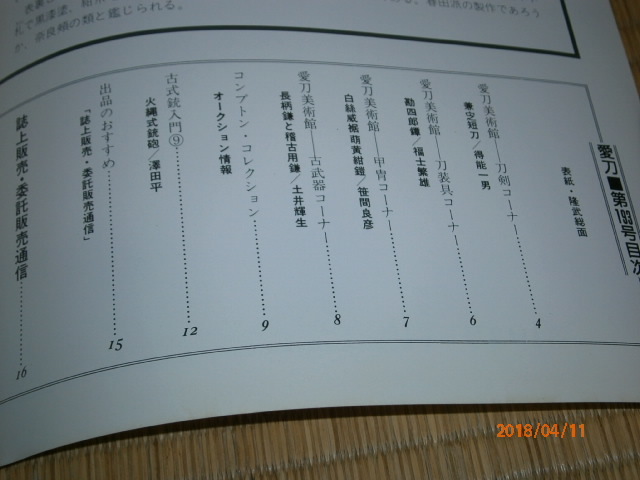 札で黒漆塗、
春田派の製作であろう
か、奈良頃の類と鑑じられる。
愛刀■第103号目次
表紙・隆武総面
愛刀美術館――刀剣コーナー…………4
兼定短刀／得能一男
愛刀美術館――刀装具コーナー…………6
勘四郎鐔／福士繁雄
愛刀美術館――甲冑コーナー…………7
白糸威裾萌黄紺鎧／笹間良彦
愛刀美術館――古武器コーナー…………8
長柄鎌と稽古用鎌／土井輝生
コンプトン・コレクション…………9
オークション情報
古式銃入門⑨…………12
火縄式銃砲／澤田平
出品のおすすめ…………15
「誌上販売・委託販売通信」
誌上販売・委託販売通信…………16
2018/04/11